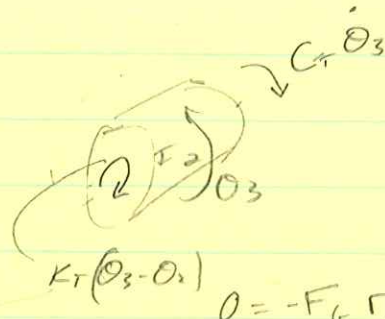 C_T θ̇3
I2
θ3
K_T(θ3-θ2)
0 = -F